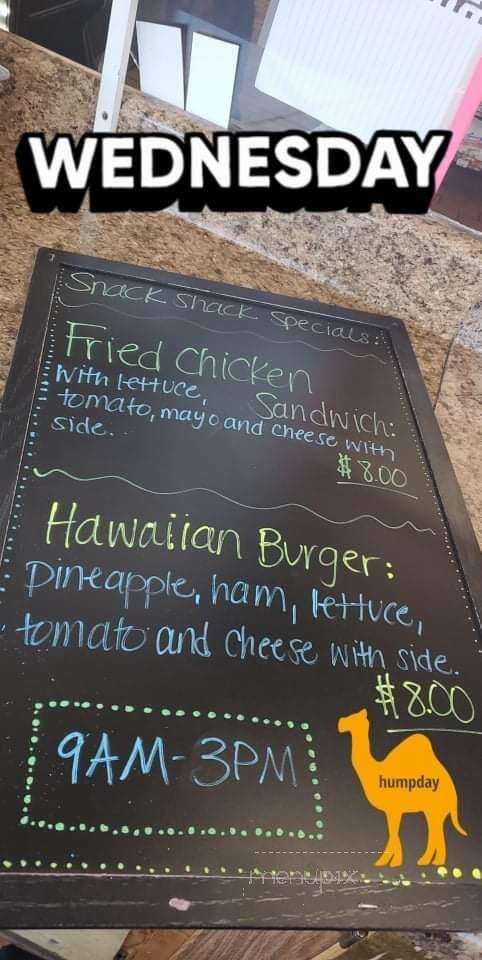 WEDNESDAY
Snack Shack Specials:
Fried Chicken
Sandwich:
With lettuce,
tomato, mayo and cheese with
side.
$8.00
Hawaiian Burger:
Pineapple, ham, lettuce,
tomato and cheese with side.
$8.00
9AM-3PM
humpday
menupix